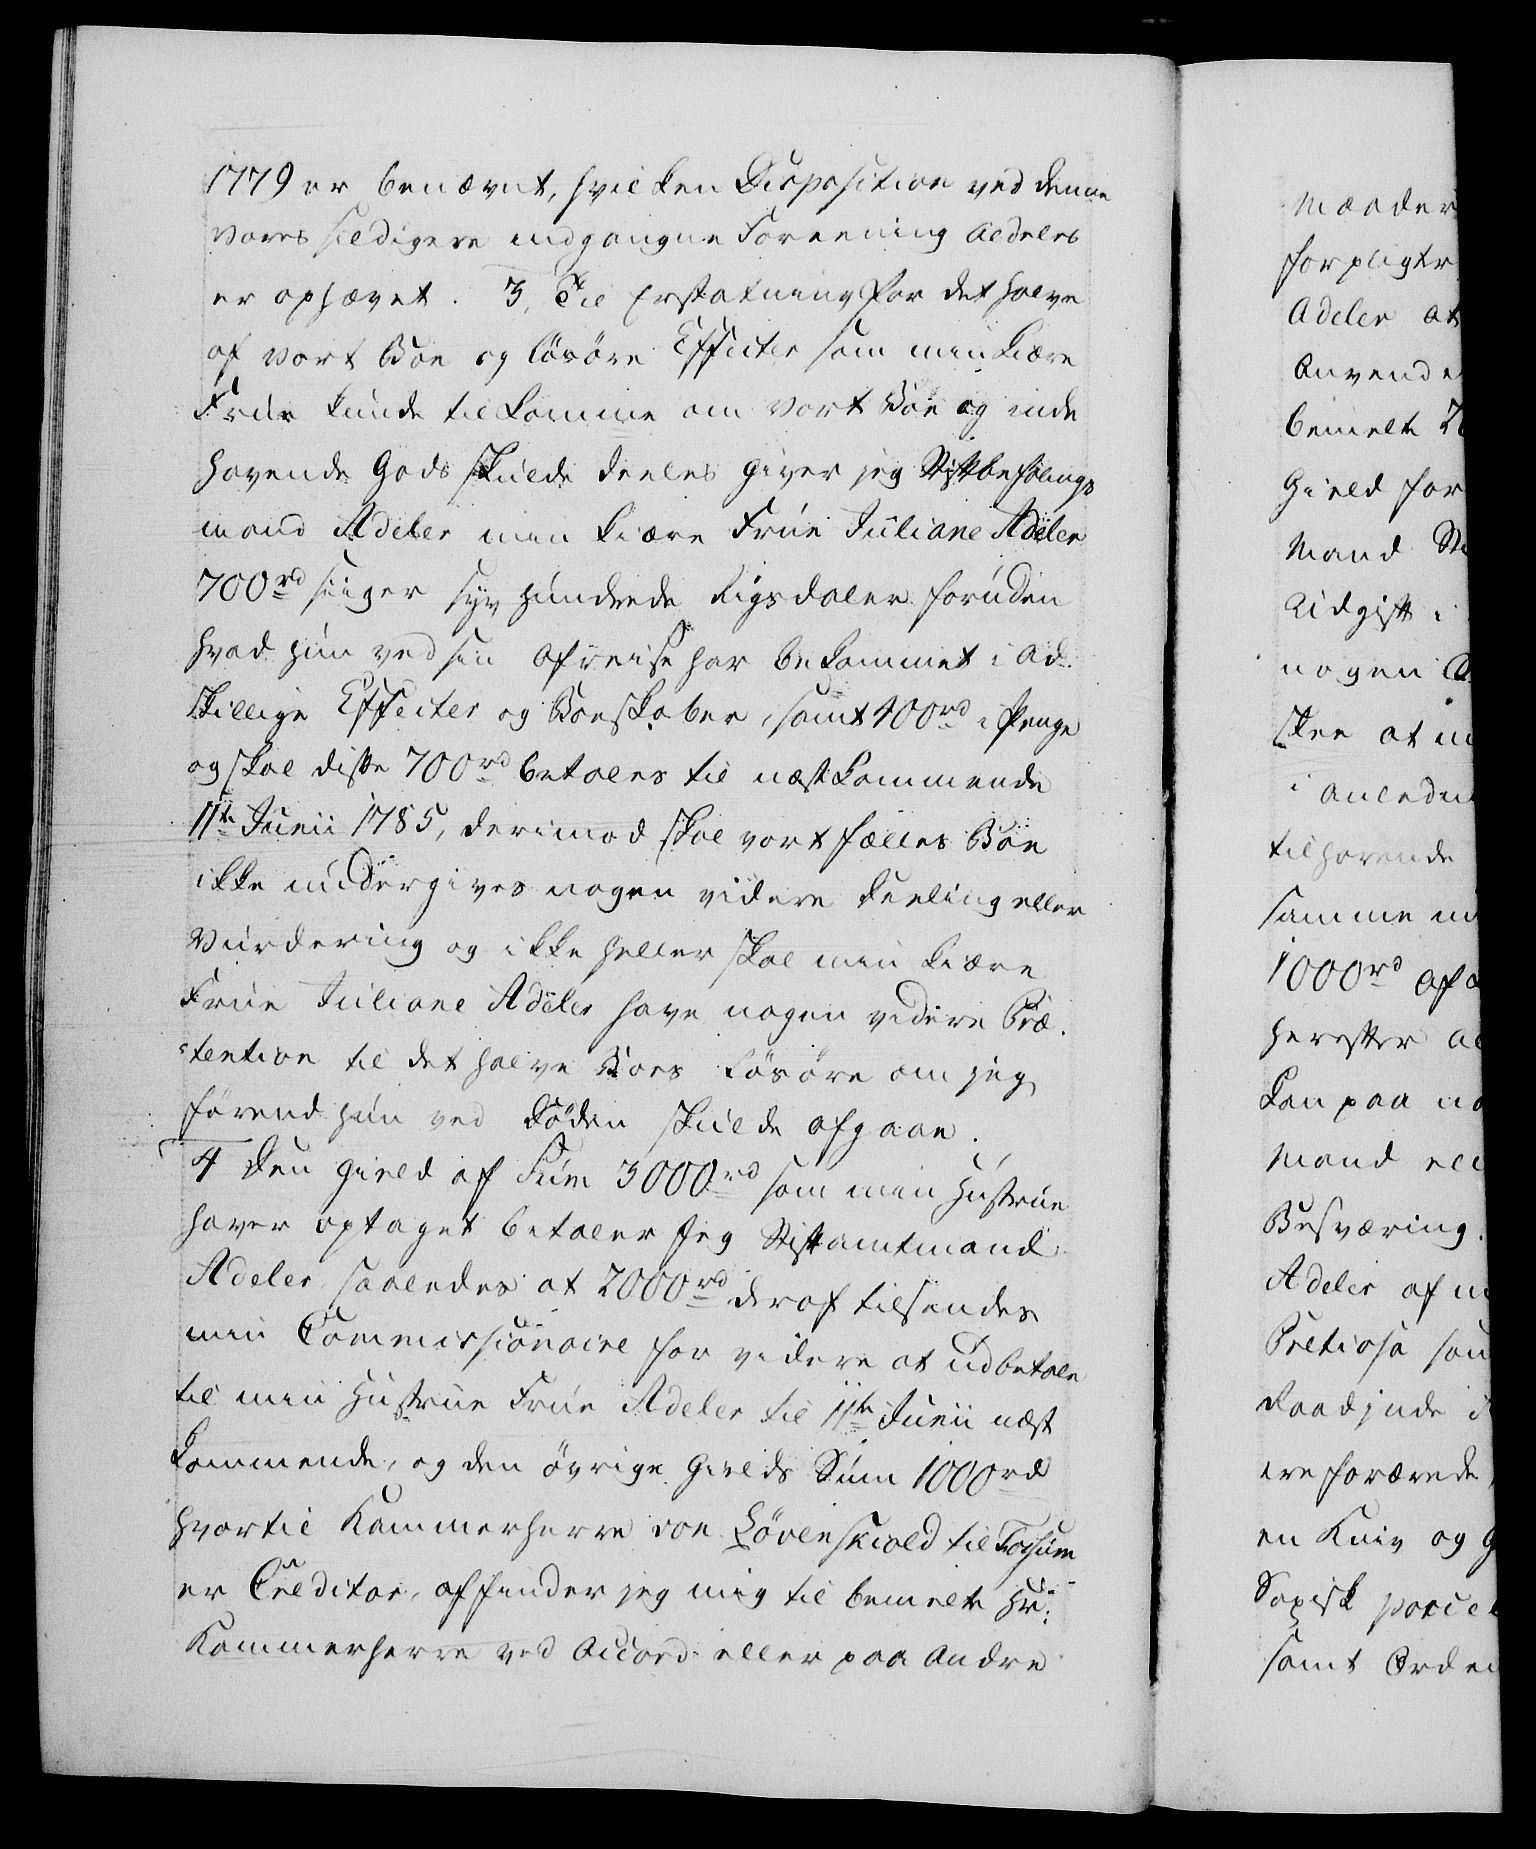 1779 er benævnt, hvilken Disposition ved denne
vores sildigere indgangne Foreening aldeles
er ophævet. 3, Til Erstatning for det halve
af vort Boe og Løsöre Effecter som min kiære
Frue kunde tilkomme om vort Boe og inde
havende Gods skulde deeles giver jeg Stiftbefalings
mand Adeler min kiære Frue Juliane Adeler
700rd siiger syv hundrede Rigsdaler foruden
hvad hun ved sin afreise har bekommet i ad
skillige Effecter og Boeskaber, samt 400rd i Penge
og skal disse 700rd betales til næstkommende
11te Junii 1785, derimod skal vort fælles Boe
ikke undergives nogen videre Deeling eller
Vurdering og ikke heller skal min kiære
Frue Juliane Adeler have nogen videre Præ-
tention til det halve Boes Løsöre om jeg
förend hun ved Döden skulde afgaae.
4 Den Gield af Sum 3000rd som min Hustrue
haver optaget betaler Jeg Stiftamtmand
Adeler saaledes at 2000rd deraf tilsendes
min Commissionaire for videre at udbetale
til min Hustrue Frue Adeler til 11te Junii næst
kommende, og den övrige Gields Sum 1000rd
hvortil Kammerherre von Lövenskiold til Fossum
er Creditor, affinder jeg mig til bemelte Hr:
Kammerherre ved Accord eller paa Andre
Maader
forpligter
Adeler at
Anvende
bemelte
Gield for
Mand
Udgift i
nogen
skee at
i anledn
tilhørende
samme
1000rd af
herefter
kan paa
Mand
Besværing.
Adeler af
Pretiosa
Raad
ere forærede
en Kniv og
Saxisk porcel
samt Orden